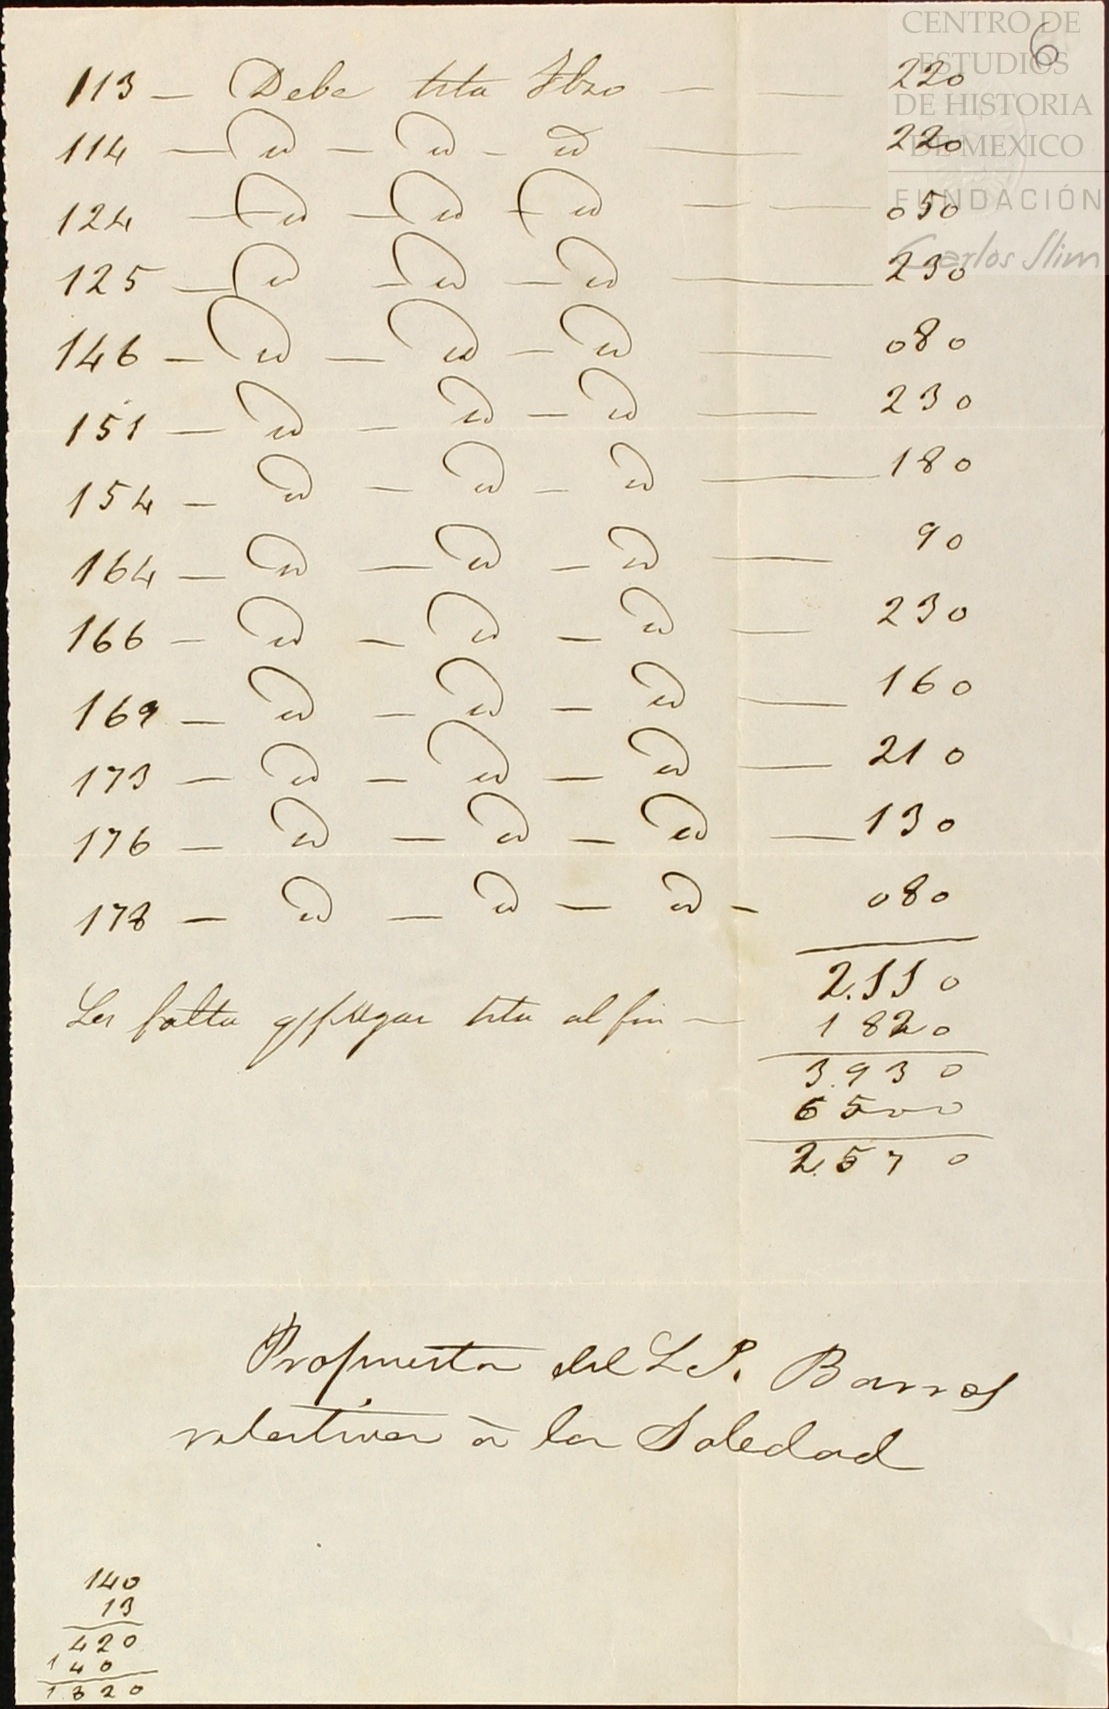 CENTRO DE
ESTUDIOS
DE HISTORIA
DE MEXICO
FUNDACIÓN
Carlos Slim
6
113 — Debe hta Fbro — — 220
114 — id — id — id — 220
124 — id — id — id — — 050
125 — id — id — id — 230
146 — id — id — id — 080
151 — id — id — id — 230
154 — id — id — id — 180
164 — id — id — id — 90
166 — id — id — id — 230
169 — id — id — id — 160
173 — id — id — id — 210
176 — id — id — id — 130
178 — id — id — id — 080
2.110
Les falta hta al fin — 1820
3.930
6500
2.570
Propuesta del S. P. Barros
relativa à la Soledad
140
13
420
140
1820